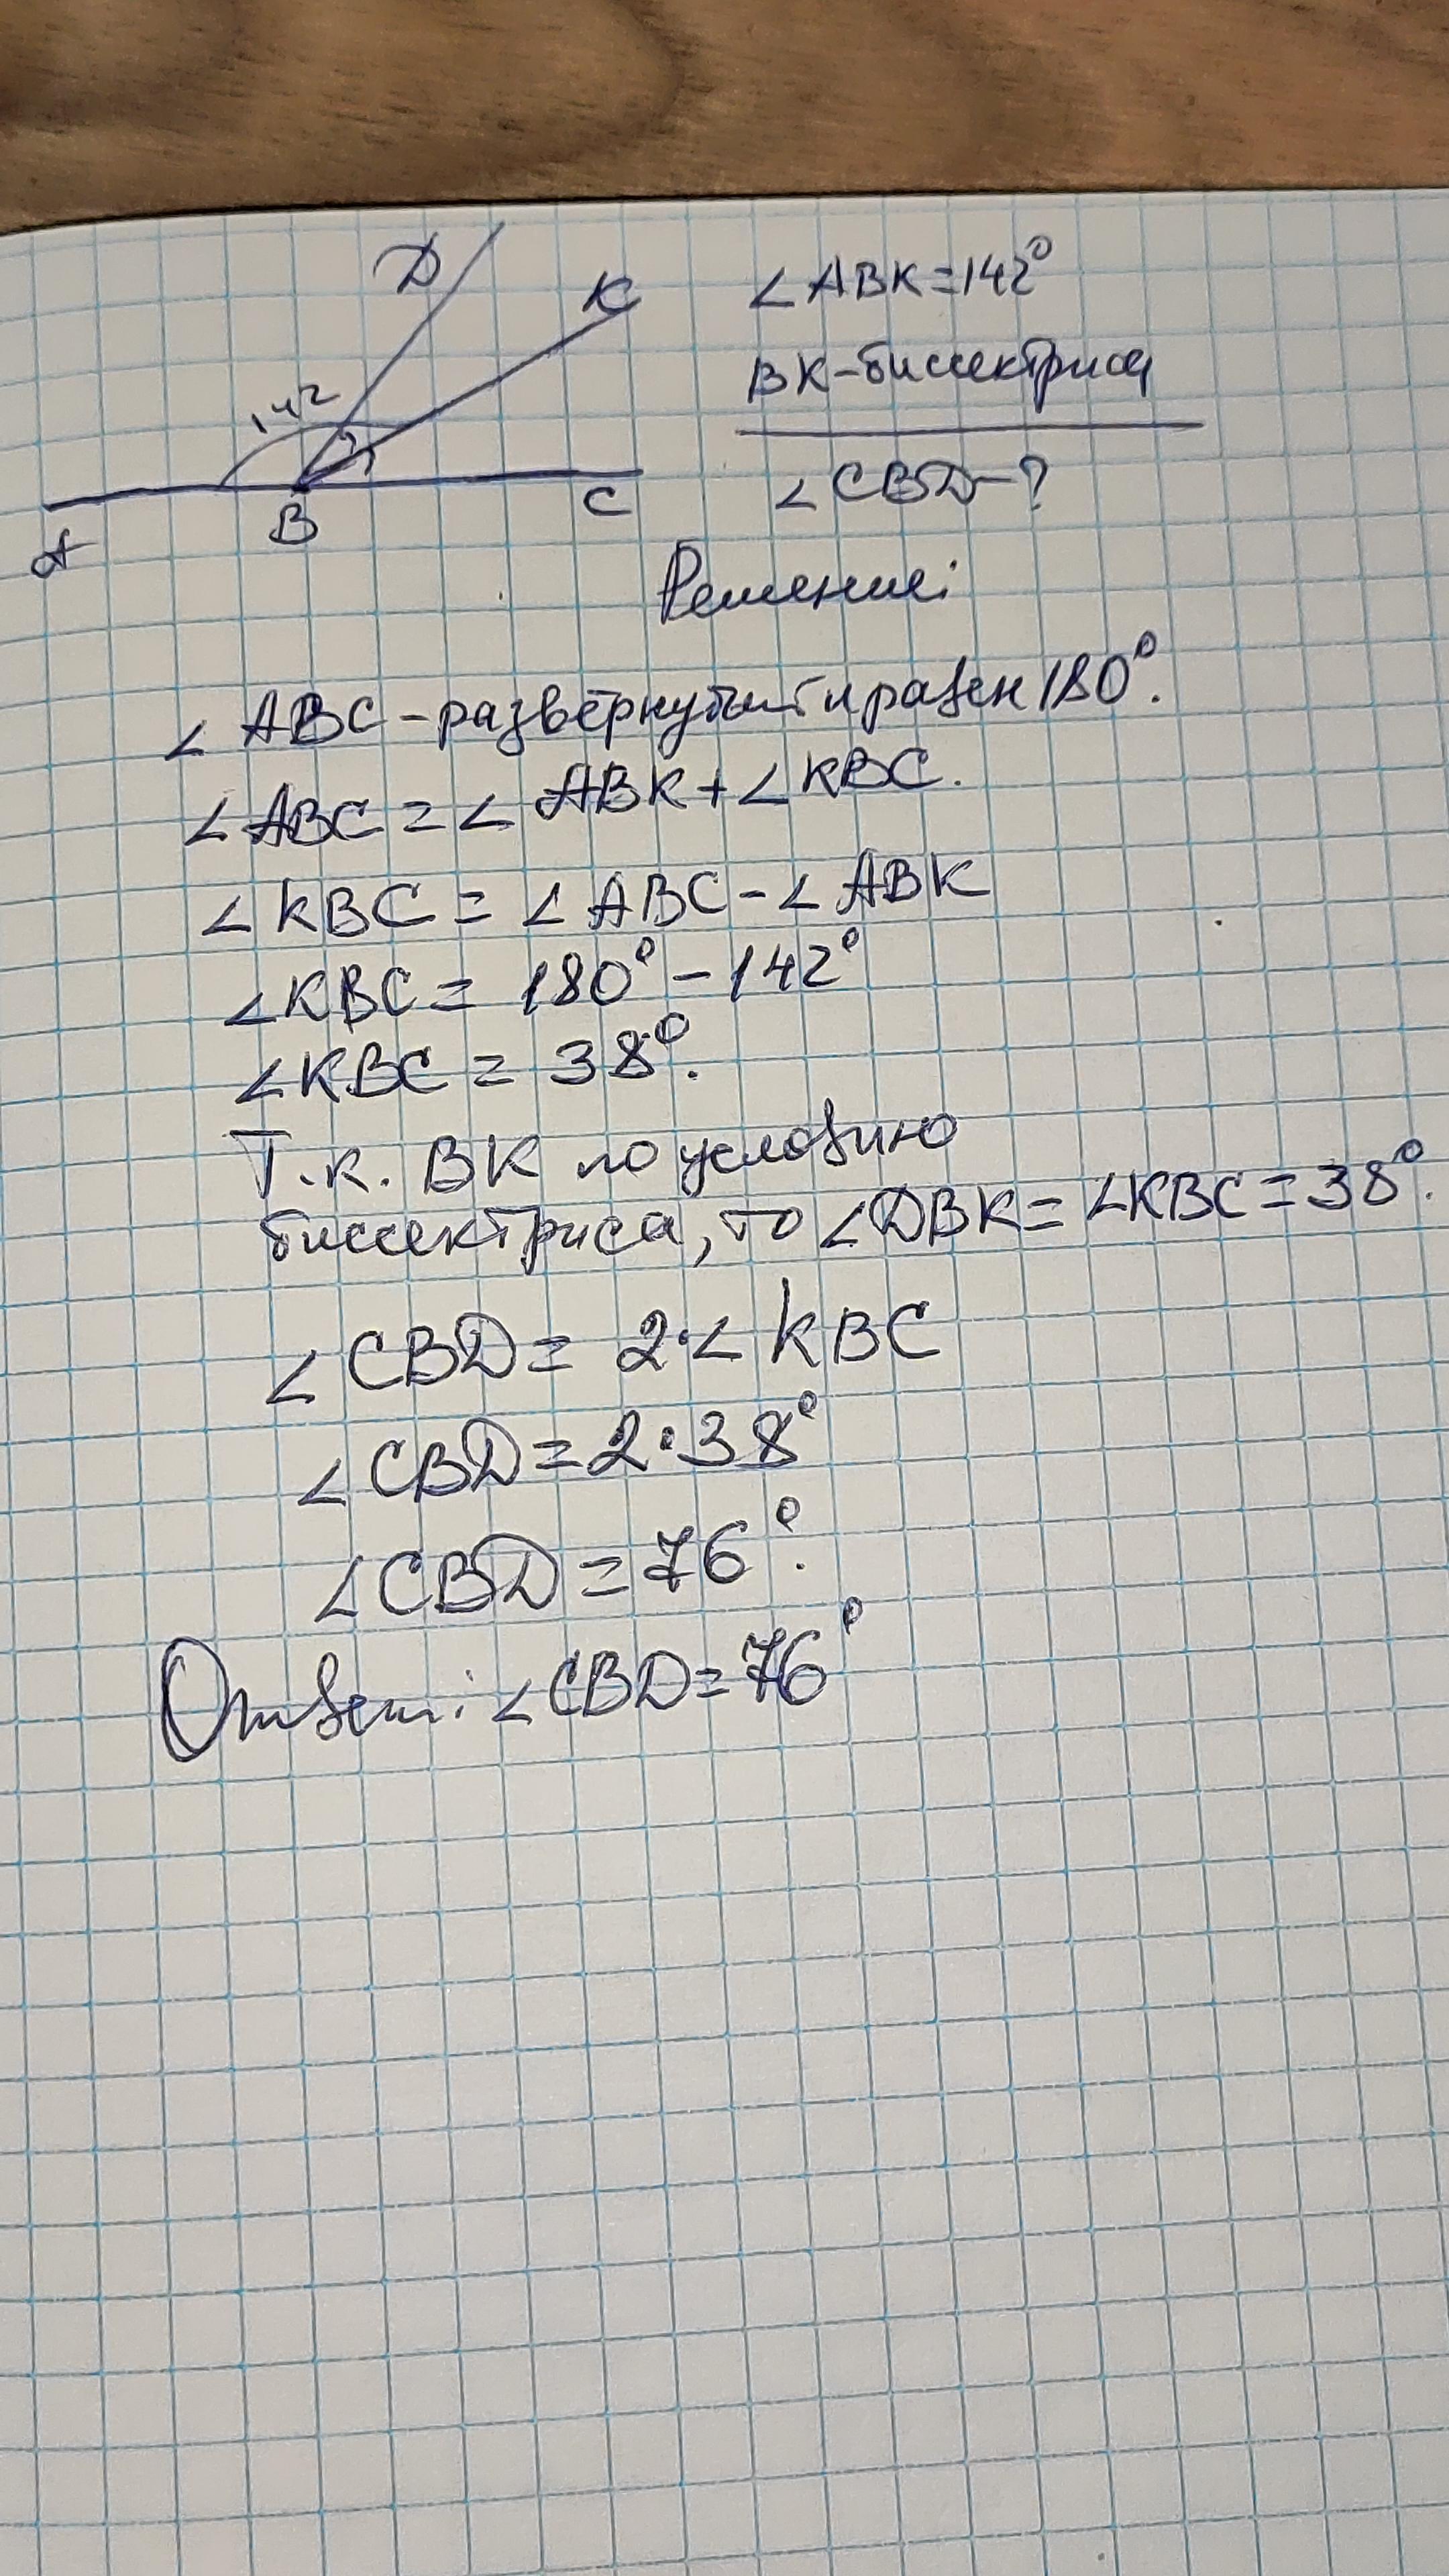 D
K
142
A
B
C
∠ABK=142°
BK-биссектриса
∠CBD-?
Решение:
∠ABC-развёрнутый и равен 180°.
∠ABC=∠ABK+∠KBC.
∠KBC=∠ABC-∠ABK
∠KBC=180°-142°
∠KBC=38°.
Т.к. BK по условию
биссектриса, то ∠DBK=∠KBC=38°.
∠CBD=2·∠KBC
∠CBD=2·38°
∠CBD=76°.
Ответ: ∠CBD=76°